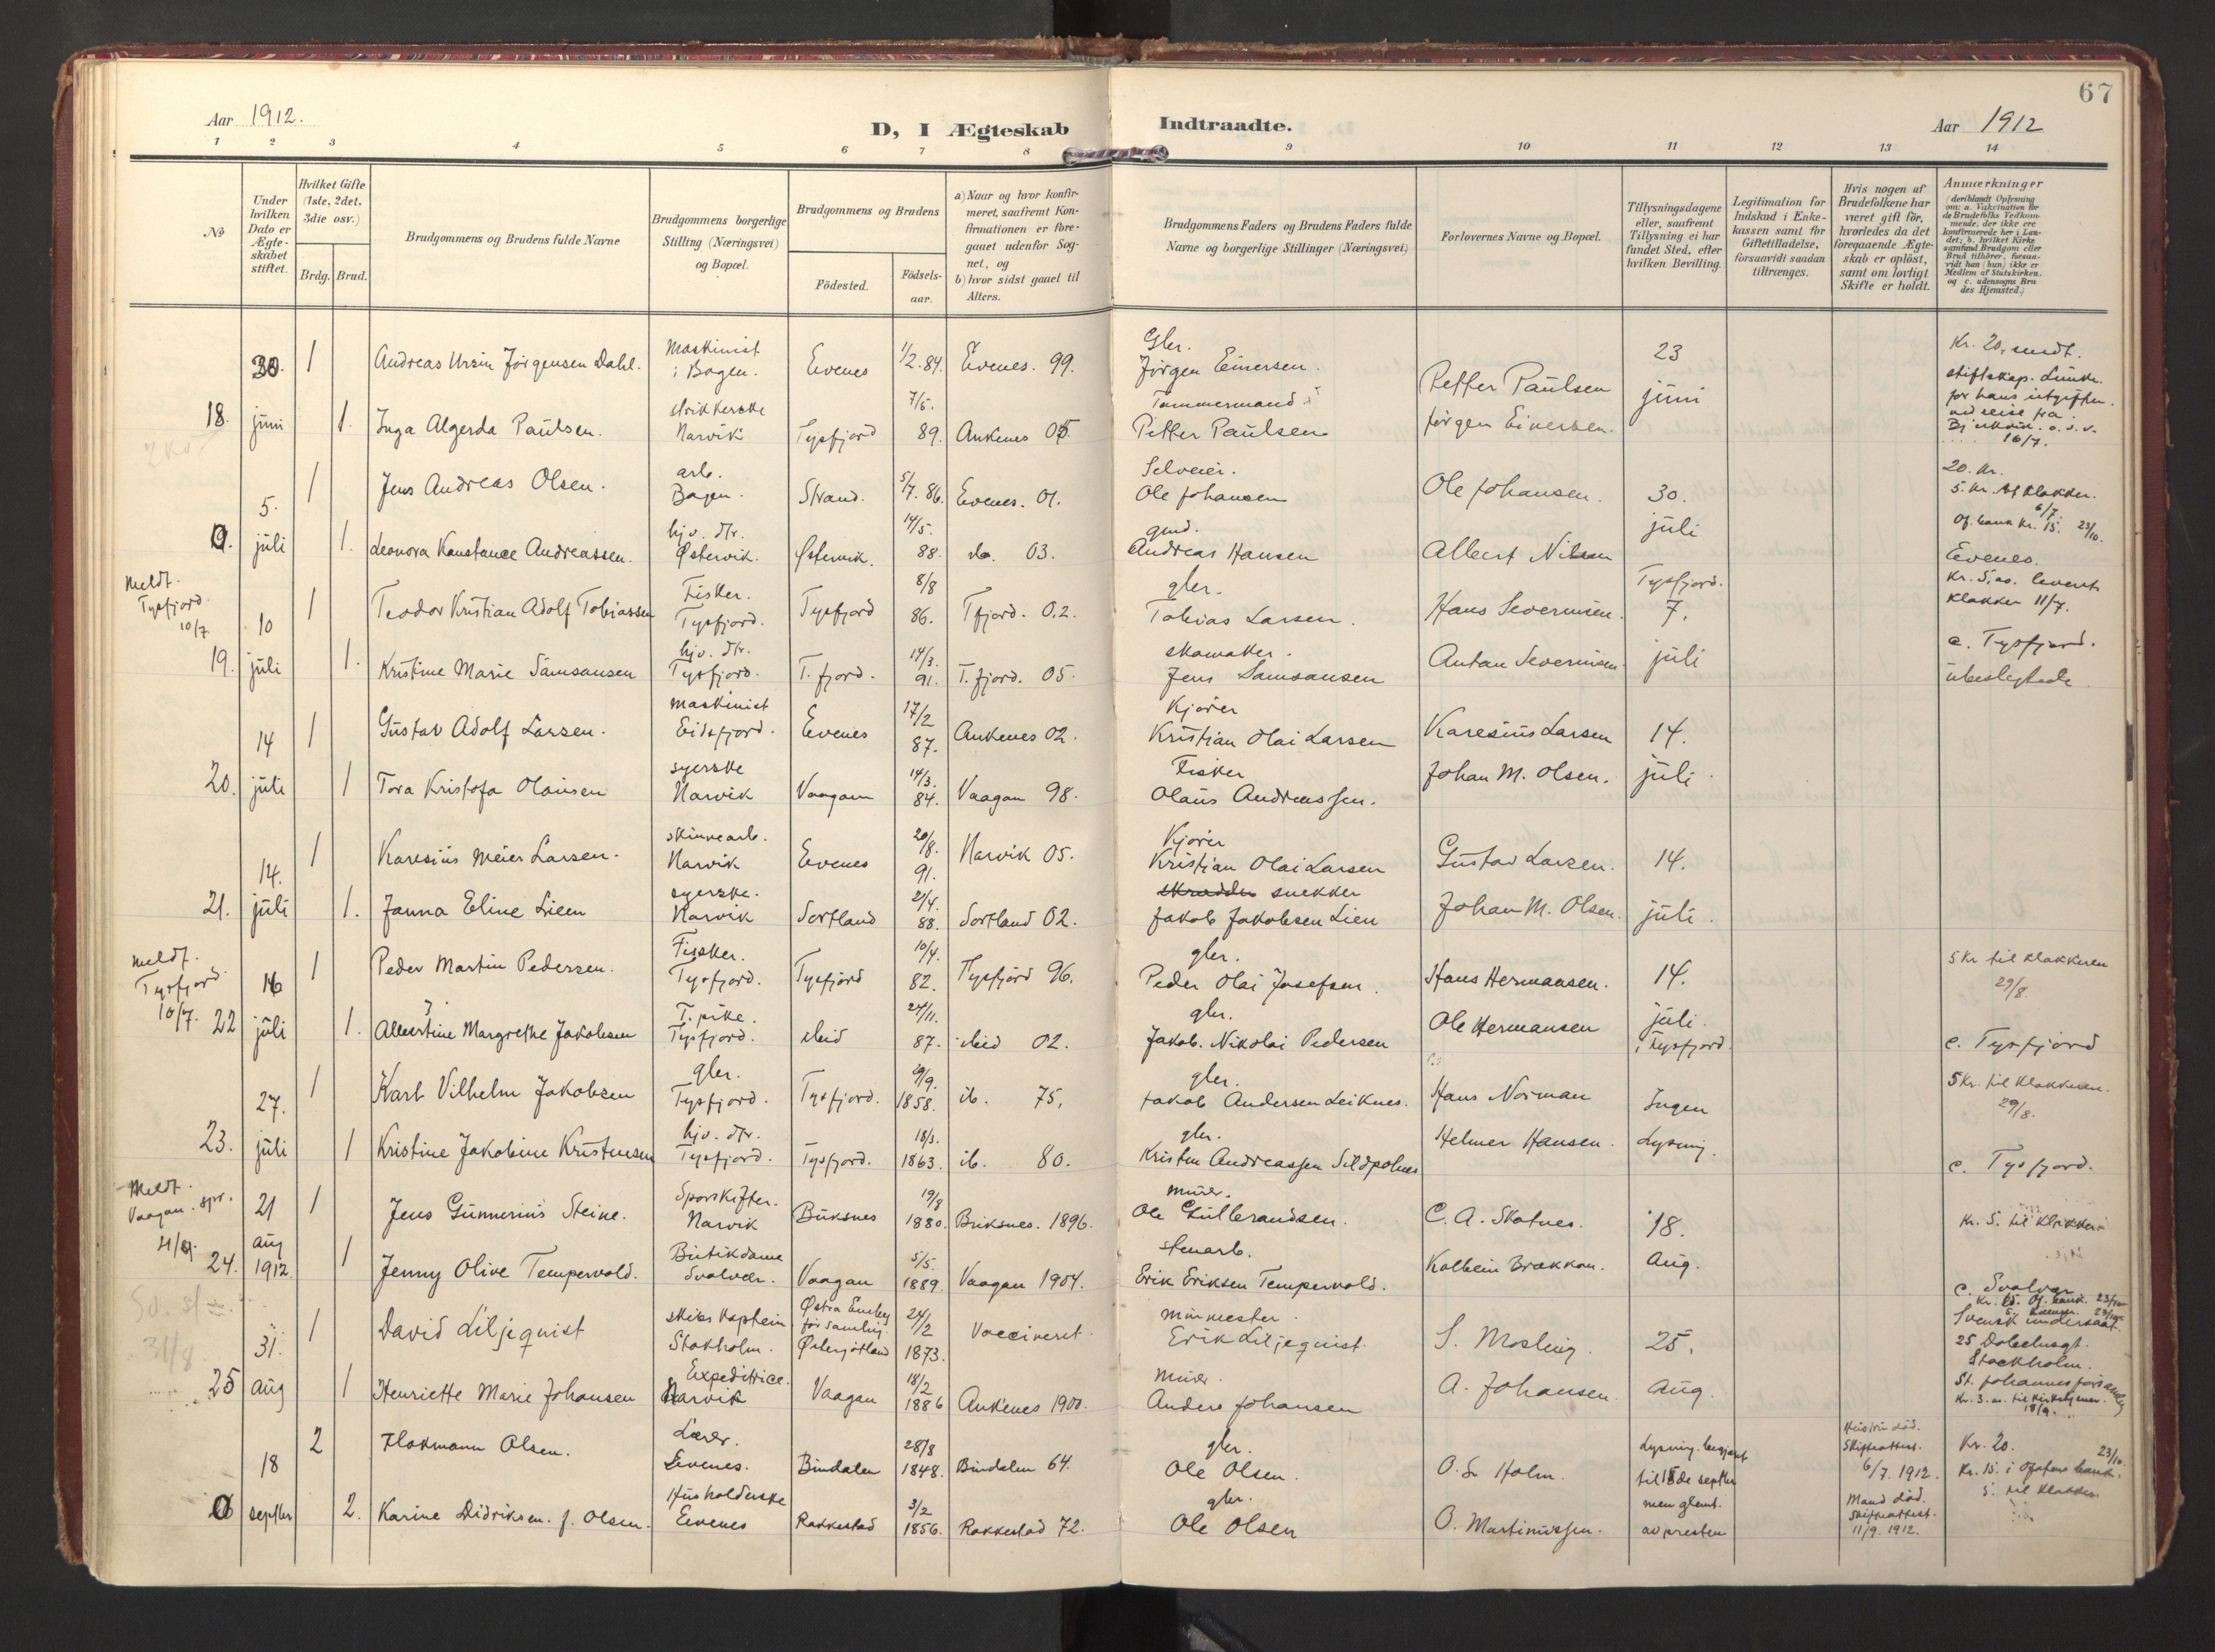 67
Aar 1912.
D, I Ægteskab Indtraadte.
Aar 1912
1 2 3 4 5 6 7 8 9 10 11 12 13 14
№
Under hvilken Dato er Ægteskabet stiftet.
Hvilket Gifte (1ste, 2det, 3die osv.)
Brdg. Brud.
Brudgommens og Brudens fulde Navne
Brudgommens borgerlige Stilling (Næringsvei) og Bopæl.
Brudgommens og Brudens
Födested.
Födsels-aar.
a) Naar og hvor konfirmeret, saafremt Konfirmationen er foregaaet udenfor Sognet, og
b) hvor sidst gaaet til Alters.
Brudgommens Faders og Brudens Faders fulde Navne og borgerlige Stillinger (Næringsvei)
Forlovernes Navne og Bopæl.
Tillysningsdagene eller, saafremt Tillysning ei har fundet Sted, efter hvilken Bevilling.
Legitimation for Indskud i Enkekassen samt for Giftetilladelse, forsaavidt saadan tiltrænges.
Hvis nogen af Brudefolkene har været gift för, hvorledes da det foregaaende Ægteskab er oplöst, samt om lovligt Skifte er holdt.
Anmærkninger
(deriblandt Oplysning om: a. Vakcination for de Brudefolks Vedkommende, der ikke ere konfirmerede her i Landet; b. hvilket Kirkesamfund Brudgom eller Brud tilhörer, forsaavidt han (hun) ikke er Medlem af Statskirken, og c. udensogns Brudes Hjemsted.)
30. 1 Andreas Ursin Jörgensen Dahl. Maskinist i Bogen. Evenes 1/2. 84. Evenes. 99. Gbr. Jörgen Einersen. Petter Paulsen 23 Kr. 20, sendt.
18. juni 1. Inga Algerda Paulsen. strikkerske Narvik Tysfjord 7/5. 89. Ankenes 05. Tømmermand Petter Paulsen Jörgen Einersen. juni 16/7.
5. 1 Jens Andreas Olsen. arb. Bogen. Strand. 5/7. 86. Evenes. 01. Selveier. Ole Johansen Ole Johansen. 30. 20. Kr. 5. Kr. til klokker. 6/7.
0. juli 1. Leonora Konstance Andreassen. hjv. dtr. Østervik. Østervik. 14/5. 88. do. 03. gmd. Andreas Hansen Albert Nilsen juli Of. bank Kr. 15. 23/10.
Evenes.
Meldt. Tysfjord. 10/7.
10 1 Teodor Kristian Adolf Tobiassen Fisker. Tysfjord. Tysfjord 8/8 86. Tfjord. 02. gbr. Tobias Larsen. Hans Severinsen. Tysfjord. 7. klokker 11/7.
19. juli 1. Kristine Marie Samsonsen hjv. dtr. Tysfjord. T.fjord. 14/3. 91. T.fjord. 05. skomaker. Jens Samsonsen Anton Severinsen. juli c. Tysfjord. ubeslegtede
14 1 Gustav Adolf Larsen. maskinist Eidsfjord. Evenes 17/2 87. Ankenes 02. Kjører Kristian Olai Larsen Karesius Larsen 14.
20. juli 1 Tora Kristofa Olausen syerske Narvik Vaagan 14/3. 84. Vaagan 98. Fisker Olaus Andreassen. Johan M. Olsen. juli.
14. 1 Karesius Meier Larsen. skinnearb. Narvik Evenes 20/8. 91. Narvik 05. Kjører Kristian Olai Larsen Gustav Larsen. 14.
21. juli 1. Janna Eline Lien syerske. Narvik Sortland 21/4. 88. Sortland 02. skrædder snekker Jakob Jakobsen Lien Johan M. Olsen. juli.
Meldt. Tysfjord. 10/7.
16 1 Peder Martin Pedersen. Fisker. Tysfjord. Tysfjord 10/4. 82. Tysfjord 96. gbr. Peder Olai Josefsen. Hans Hermansen. 14. 5 Kr til klokkeren 29/8.
22 juli 1. Albertine Margrethe Jakobsen T. pike. Tysfjord. ibid 24/11. 87. ibid 02. gbr. Jakob. Nikolai Pedersen Ole Hermansen juli. i Tysfjord. c. Tysfjord
27. 1 Karl Vilhelm Jakobsen gbr. Tysfjord. Tysfjord. 29/9. 1858. ib. 75. gbr. Jakob Andersen Leiknes. Hans Norman Ingen 5 Kr. til klokkeren. 29/8.
23. juli 1 Kristine Jakobine Kristensen hjv. dtr. Tysfjord. Tysfjord. 18/3. 1863. ib. 80. gbr. Kristen Andreassen Sildpolnes Helmer Hansen. Lysning. c. Tysfjord.
Meldt. Vaagan. spr.
21 1 Jens Gunnerius Steine. Sporskifter. Narvik Buksnes 19/8 1880. Buksnes. 1896. murer. Ole Gulbrandsen. C. A. Skotnes. 18. Kr. 5. til klokker
24. aug 1912. 1 Jenny Olive Tempervold. Butikdame Svolvær. Vaagan 5/5. 1889. Vaagan 1904. stenarb. Erik Eriksen Tempervold. Kolbein Brækkan. aug. c. Svolvær
31/8
31. 1 David Liljequist skibskaptein Stokholm. Östra Eneby församling Östergötland 24/2 1873. Vaccineret. murmester. Erik Liljequist. S. Mosling. 25. Svensk undersaat. Stockholm.
25 aug 1 Henriette Marie Johansen Expeditrice. Narvik Vaagan 18/2 1886 Ankenes 1900. murer. Anders Johansen A. Johansen. aug. St. Johannes församling
18 2 Flokmann Olsen. Lærer. Evenes. Bindalen 28/8 1848. Bindalen 64. gbr. Ole Olsen. O. S. Holm. Lysning begjært til 15de septbr Hustru död. Skifteattest. 6/7. 1912. Kr. 20. 23/10. Kr. 15. i Ofotens bank.
0 septbr 2. Karine Didriksen. f. Olsen. Husholderske Evenes Rakkestad 3/2 1856. Rakkestad 72. gbr. Ole Olsen O. Martinussen. men glemt. av presten Mand död. Skifteattest. 11/9. 1912. 5. til klokker